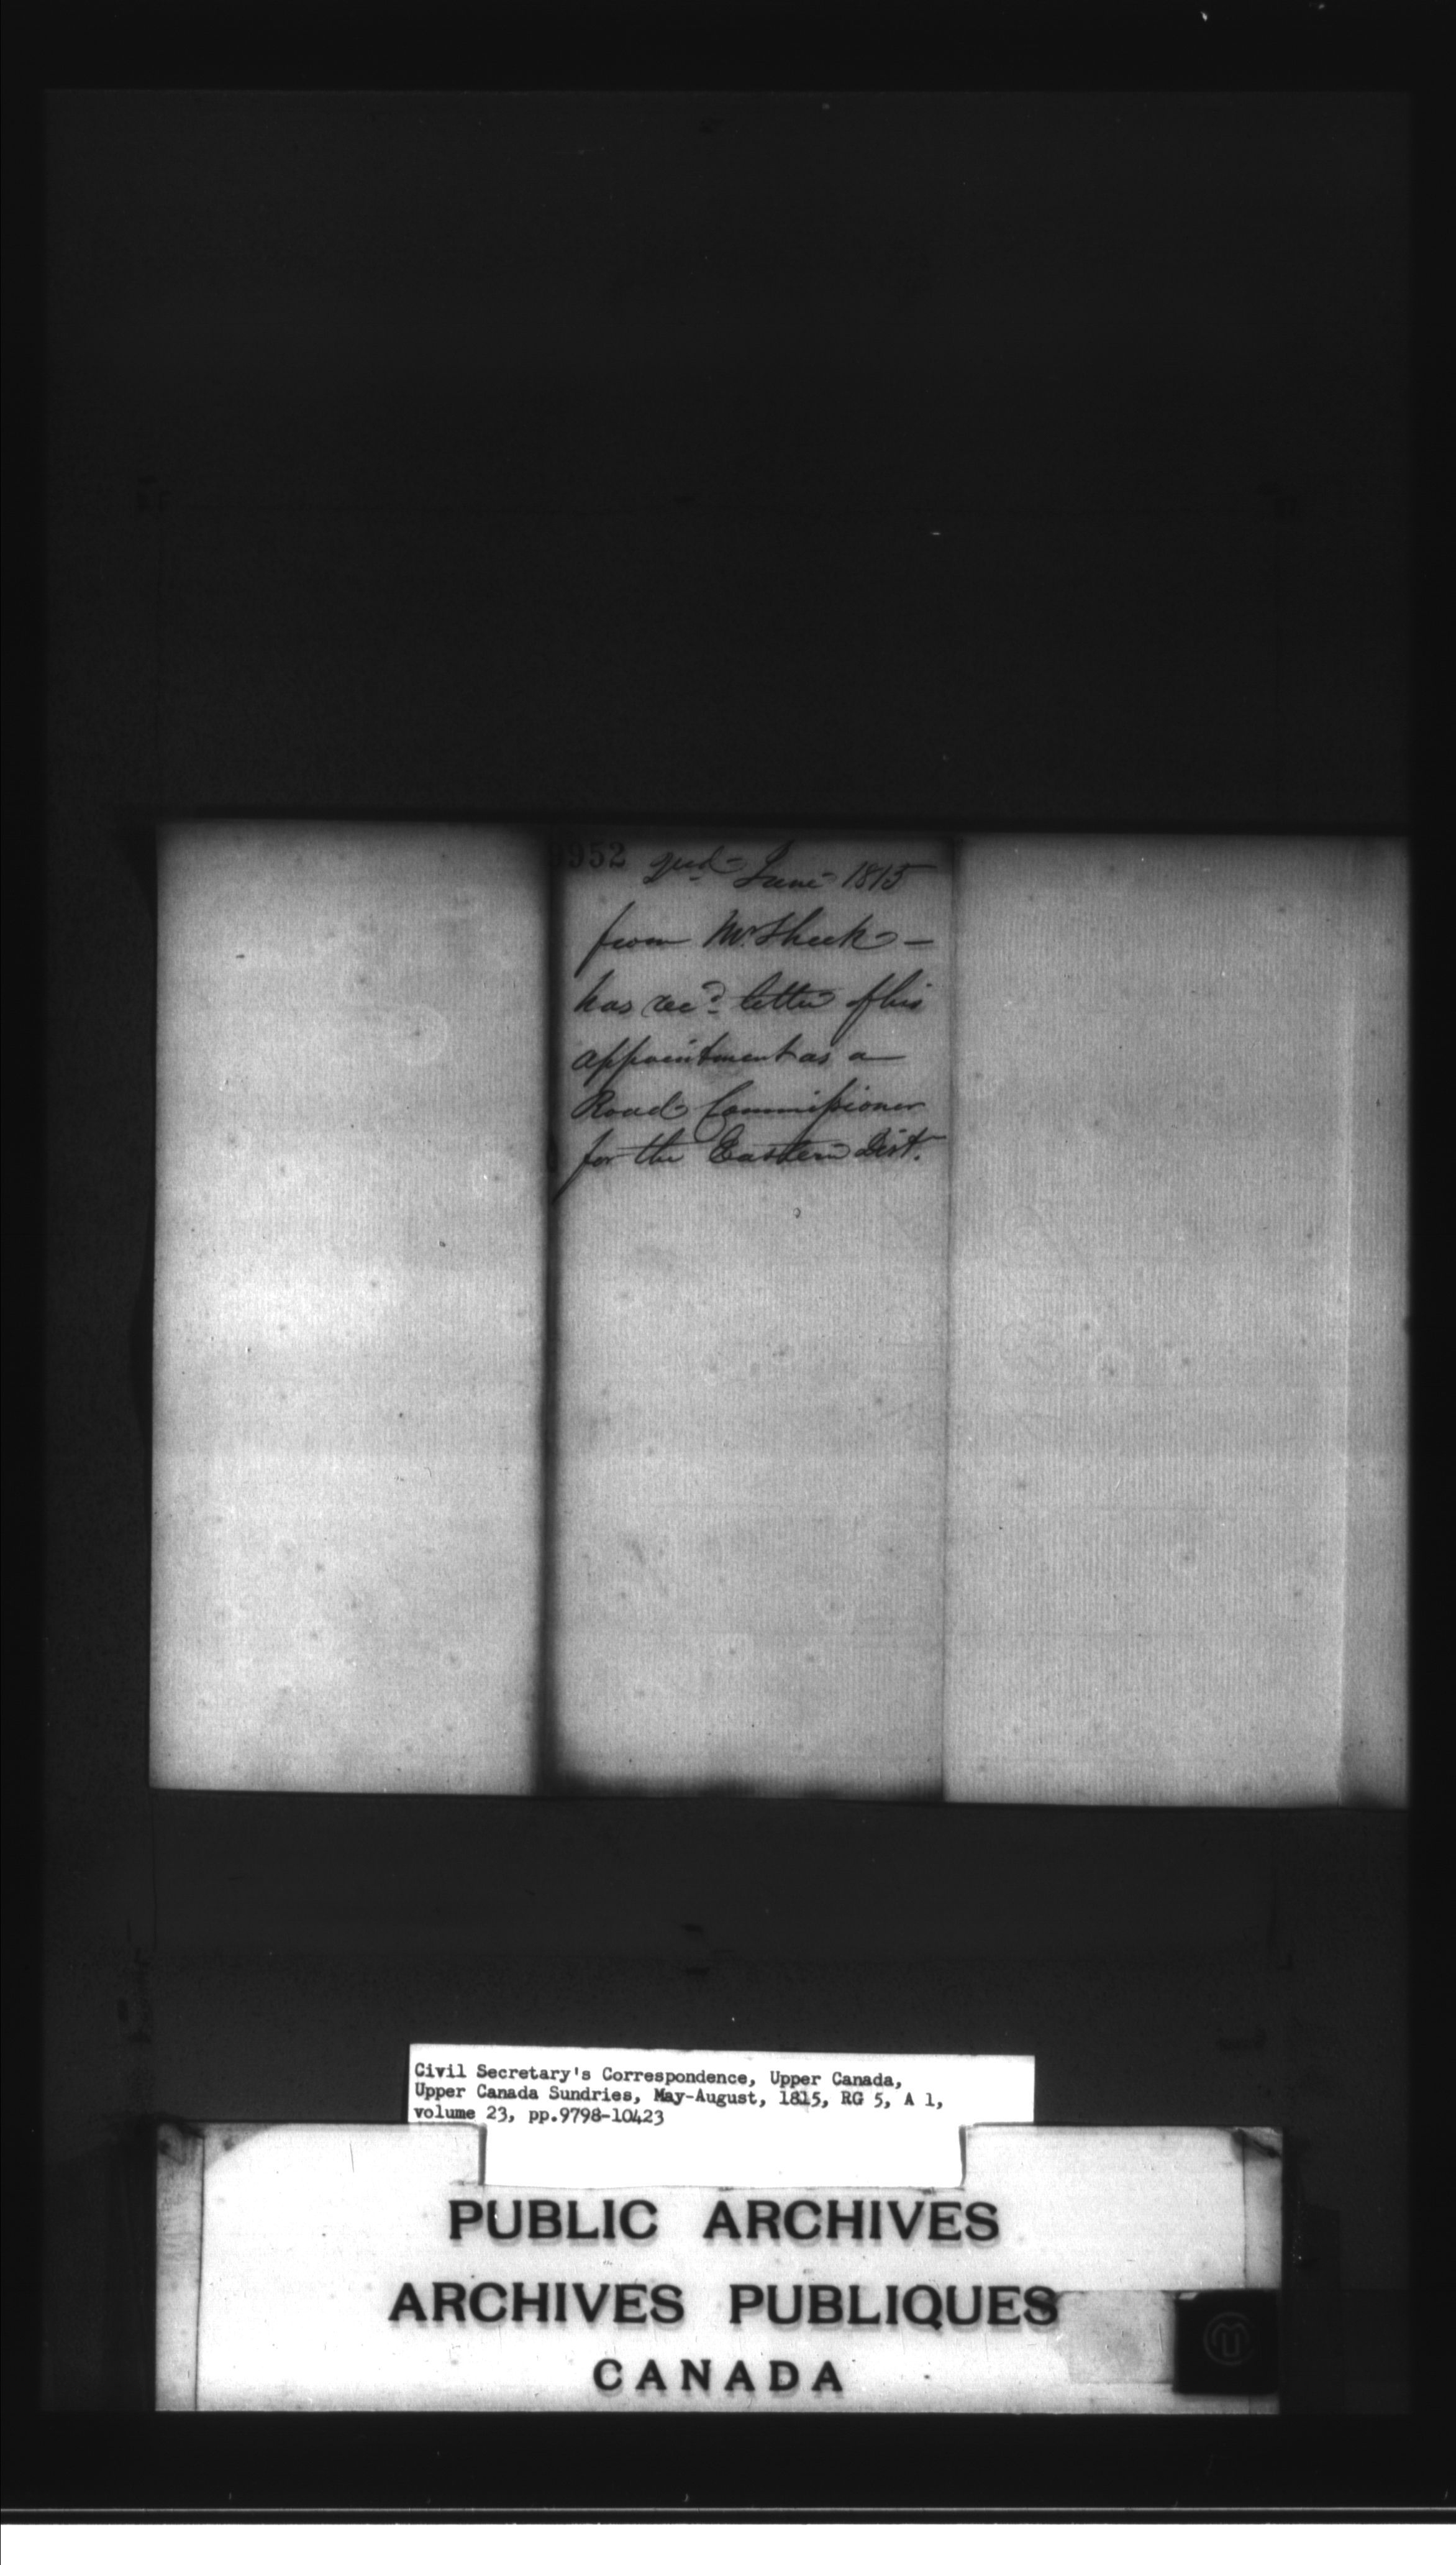 9952 June 1815
from Mr. Sheek —
has rec'd letter of his
appointment as a
Road Commissioner
for the Eastern Dist.
Civil Secretary's Correspondence, Upper Canada,
Upper Canada Sundries, May-August, 1815, RG 5, A 1,
volume 23, pp.9798-10423
PUBLIC ARCHIVES
ARCHIVES PUBLIQUES
CANADA